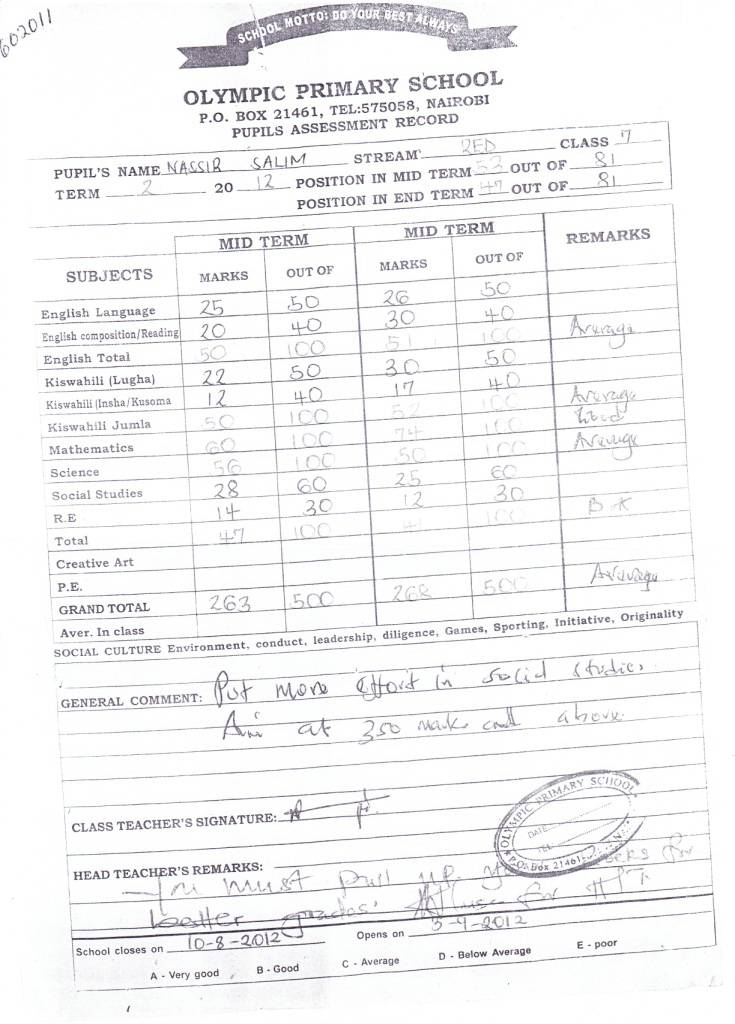 602011
SCHOOL MOTTO: DO YOUR BEST ALWAYS
OLYMPIC PRIMARY SCHOOL
P.O. BOX 21461, TEL:575058, NAIROBI
PUPILS ASSESSMENT RECORD
PUPIL'S NAME NASSIR SALIM STREAM RED CLASS 7
TERM 2 2012 POSITION IN MID TERM 52 OUT OF 81
POSITION IN END TERM 47 OUT OF 81
SUBJECTS MID TERM MID TERM REMARKS
MARKS OUT OF MARKS OUT OF
English Language 25 50 26 50
English composition/Reading 20 40 30 40
English Total 50 100 51 100 Average
Kiswahili (Lugha) 22 50 30 50
Kiswahili (Insha/Kusoma 12 40 17 40
Kiswahili Jumla 50 100 52 100 Average
Mathematics 60 100 74 100 Good
Science 56 100 50 100 Average
Social Studies 28 60 25 60
R.E 14 30 12 30
Total 47 100 41 100
Creative Art
P.E.
GRAND TOTAL 263 500 268 500 Average
Aver. In class
SOCIAL CULTURE Environment, conduct, leadership, diligence, Games, Sporting, Initiative, Originality
GENERAL COMMENT: Put more effort in social studies
Aim at 350 marks and above.
CLASS TEACHER'S SIGNATURE:
OLYMPIC PRIMARY SCHOOL
DATE
P.O. Box 21461
HEAD TEACHER'S REMARKS:
You must pull up for
better grades. for HTT
School closes on 10-8-2012 Opens on 3-9-2012
A - Very good B - Good C - Average D - Below Average E - poor